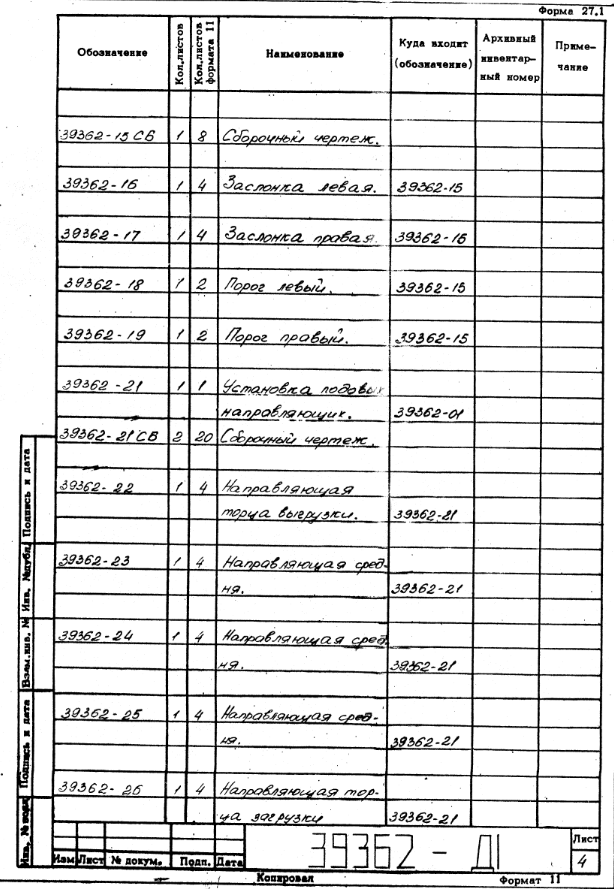 Форма 27.1
Обозначение
Кол.листов
Кол.листов формата 11
Наименование
Куда входит (обозначение)
Архивный инвентар-ный номер
Приме-чание
39362-15 СБ 1 8 Сборочный чертеж.
39362-16 1 4 Заслонка левая. 39362-15
39362-17 1 4 Заслонка правая. 39362-15
39362-18 1 2 Порог левый. 39362-15
39362-19 1 2 Порог правый. 39362-15
39362-21 1 1 Установка подовых
направляющих. 39362-01
39362-21 СБ 2 20 Сборочный чертеж.
39362-22 1 4 Направляющая
торца выгрузки. 39362-21
39362-23 1 4 Направляющая сред-
няя. 39362-21
39362-24 1 4 Направляющая сред-
няя. 39362-21
39362-25 1 4 Направляющая сред-
няя. 39362-21
39362-26 1 4 Направляющая тор-
ца загрузки 39362-21
Подпись и дата
Инв. №дубл.
Взам.инв. №
Подпись и дата
Инв. № подл.
Изм Лист № докум. Подп. Дата
39362 - Д1
Лист
4
Копировал
Формат 11